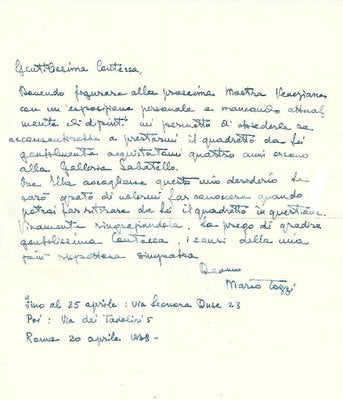 Gentilissima Contessa,
Dovendo figurare alla prossima Mostra Veneziana
con un'esposizione personale e mancando attual
mente di dipinti mi permetto di chiederLe se
acconsentirebbe a prestarmi il quadretto da Lei
gentilmente acquistatomi quattro anni orsono
alla Galleria Sabatello.
Ove Ella accogliesse questo mio desiderio Le
sarò grato di volermi far conoscere quando
potrei far ritirare da Lei il quadretto in questione.
Vivamente ringraziandola, La prego di gradire
gentilissima Contessa, i sensi della mia
più rispettosa simpatia
Devmo
Mario Tozzi
Fino al 25 aprile : via Eleonora Duse 23
Poi : Via dei Tadolini 5
Roma 20 aprile 1938 -